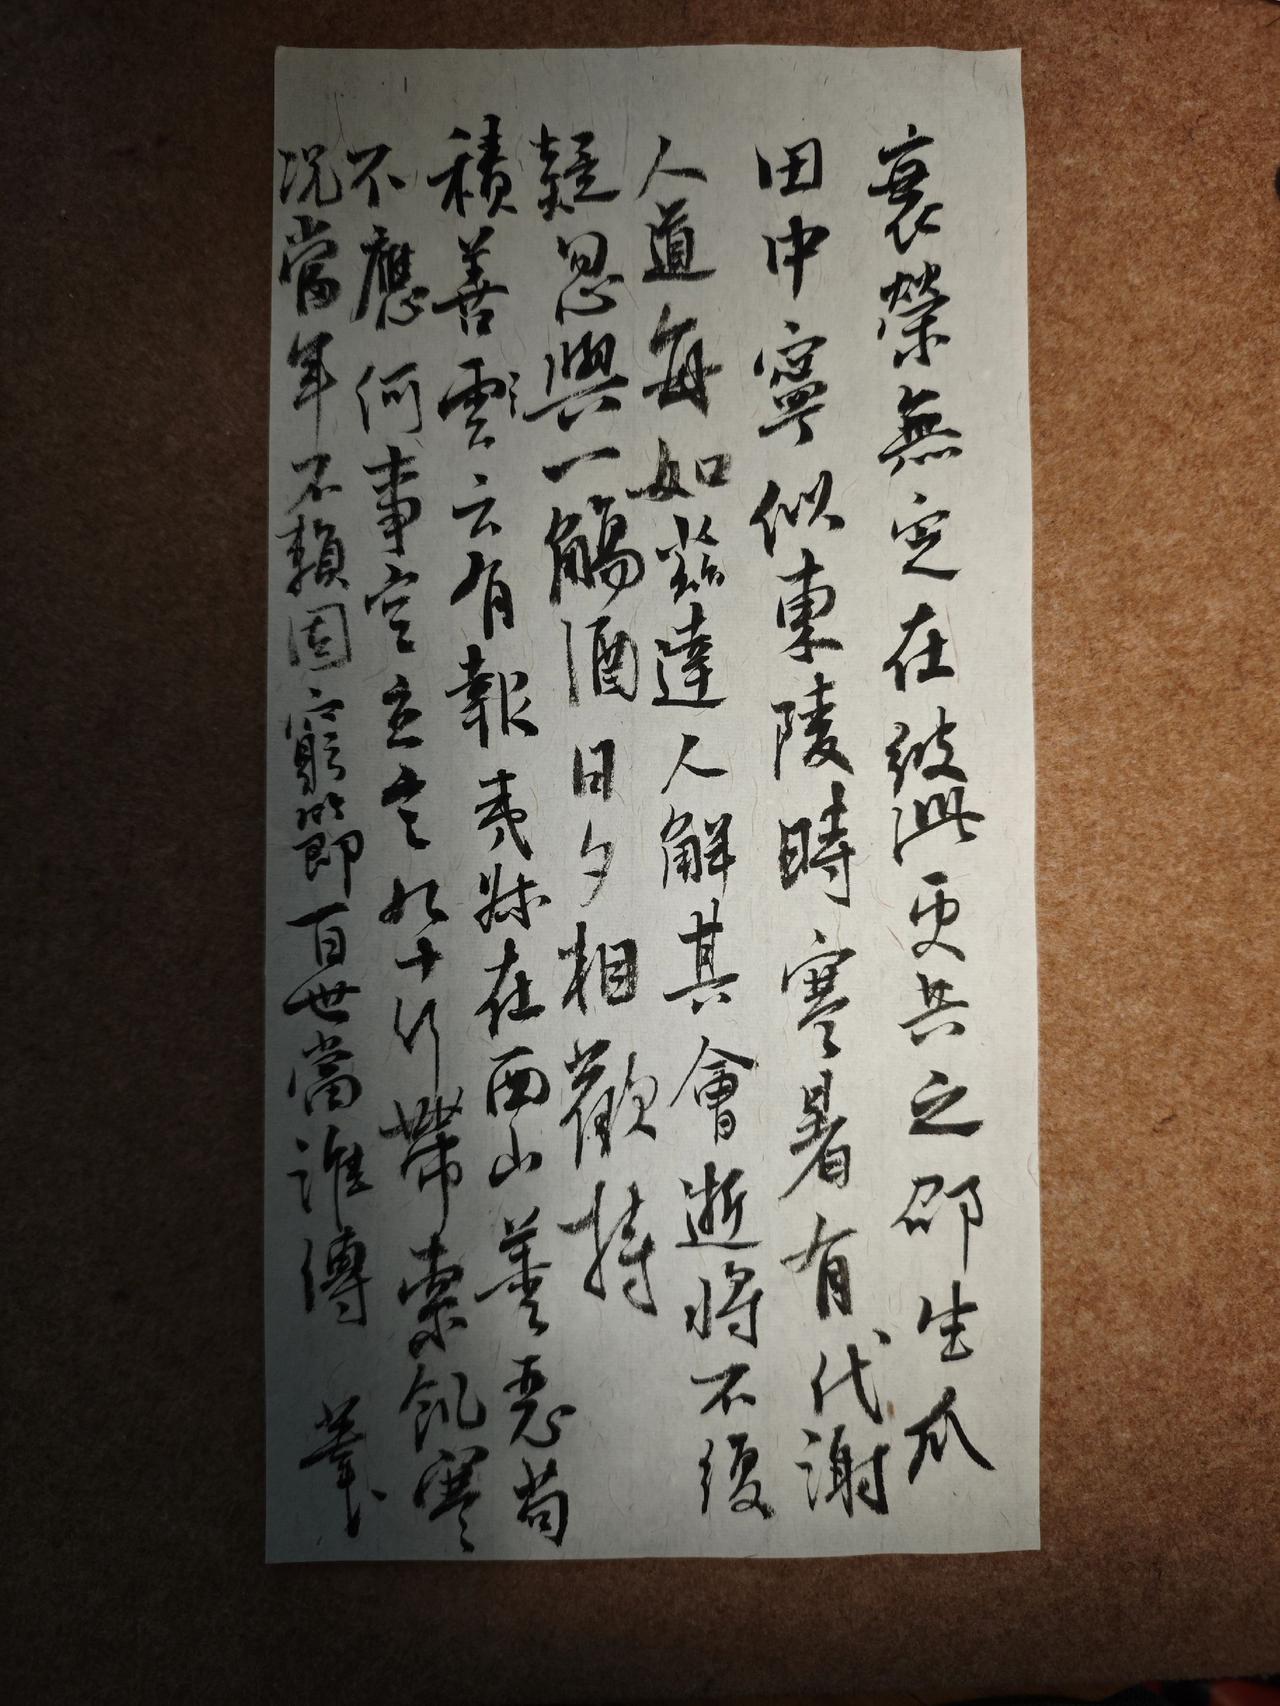 衰榮無定在彼此更共之邵生瓜
田中寧似東陵時寒暑有代謝
人道每如茲達人解其會逝將不復
疑忽與一觴酒日夕相歡持
積善雲云有報夷叔在西山善惡苟
不應何事空立言九十行帶索飢寒
况當年不賴固窮節百世當誰傳